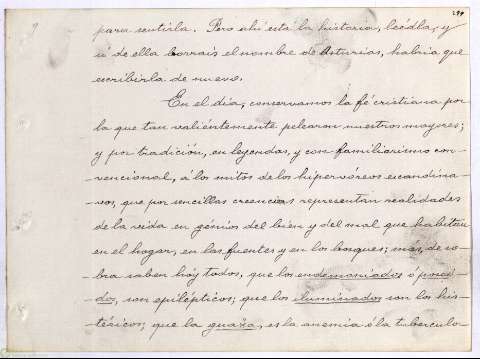 para sentirla. Pero ahí está la historia, leédla, y
si de ella borrais el nombre de Asturias, habría que
escribirla de nuevo.
En el día, conservamos la fé cristiana por
la que tan valientemente pelearon nuestros mayores;
y por tradición, en leyendas, y con familiarismo con-
vencional, á los mitos de los hiperbóreos escandina-
vos, que por sencillas creencias representan realidades
de la vida en génios del bien y del mal que habitan
en el hogar, en las fuentes y en los bosques; más, de so-
bra saben hóy todos, que los endemoniados ó poseí-
dos, son epilépticos; que los iluminados son los his-
téricos; que la guaxa, es la anemia ó la tuberculo-